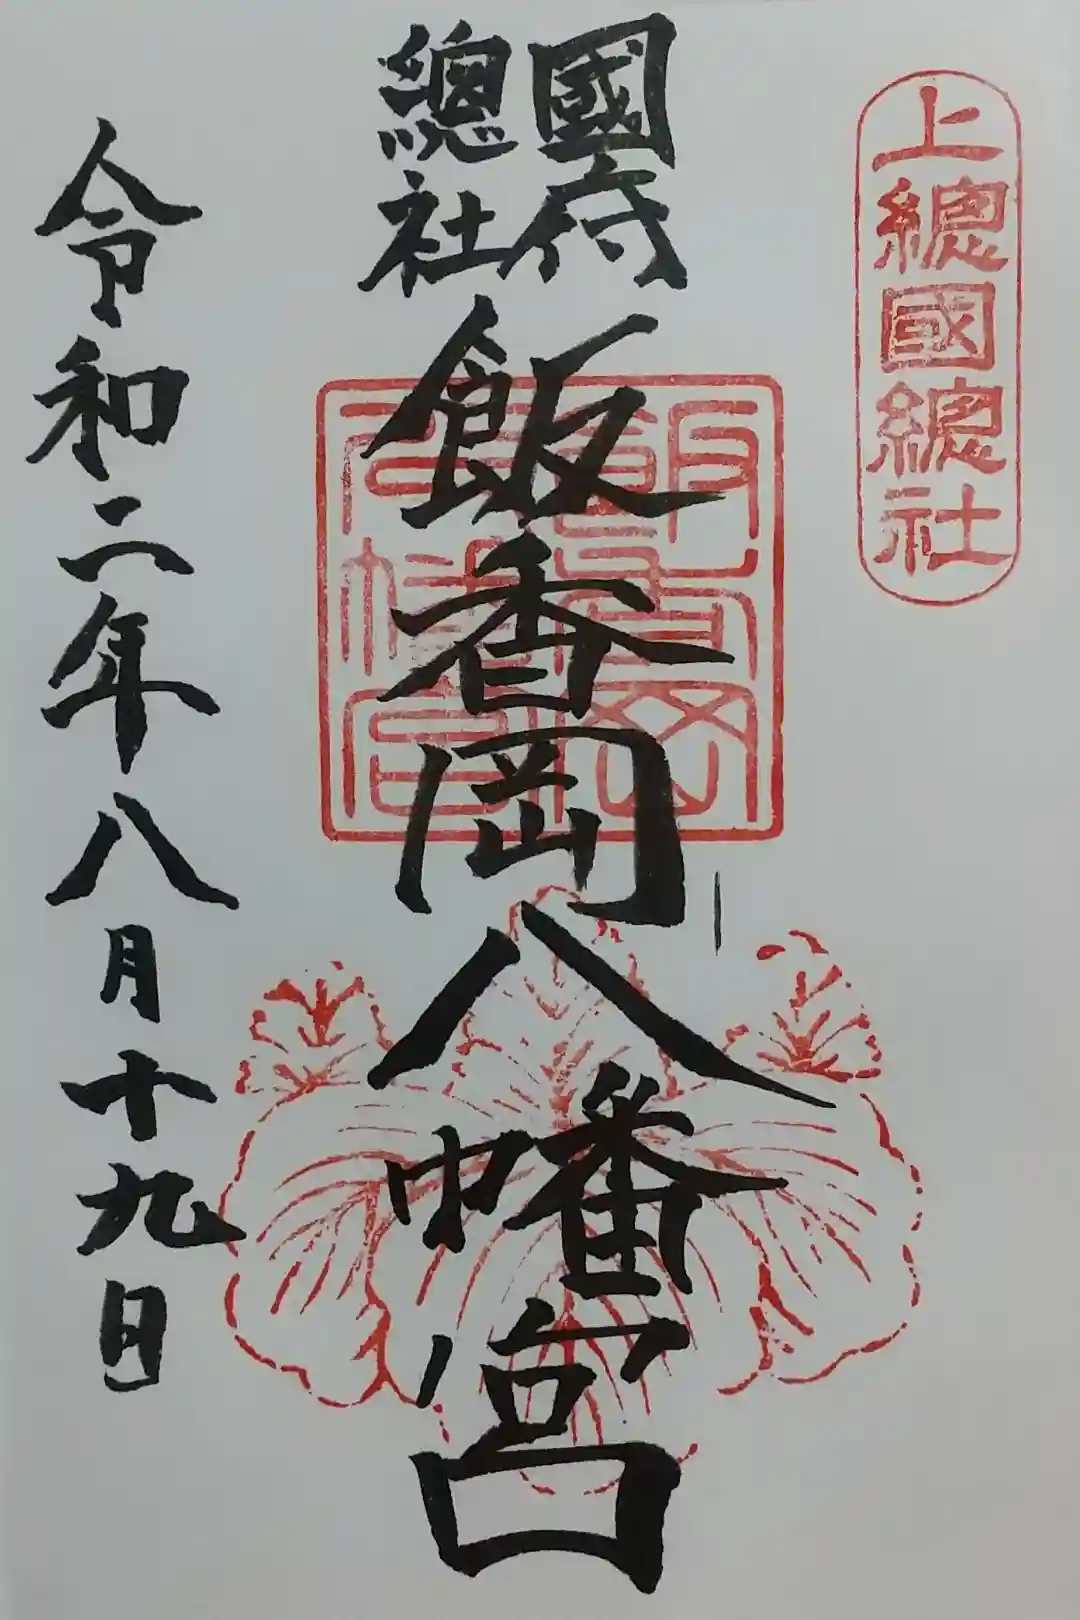 上總國總社
國府
總社
飯香岡八幡宮
飯香岡八幡宮
令和二年八月十九日